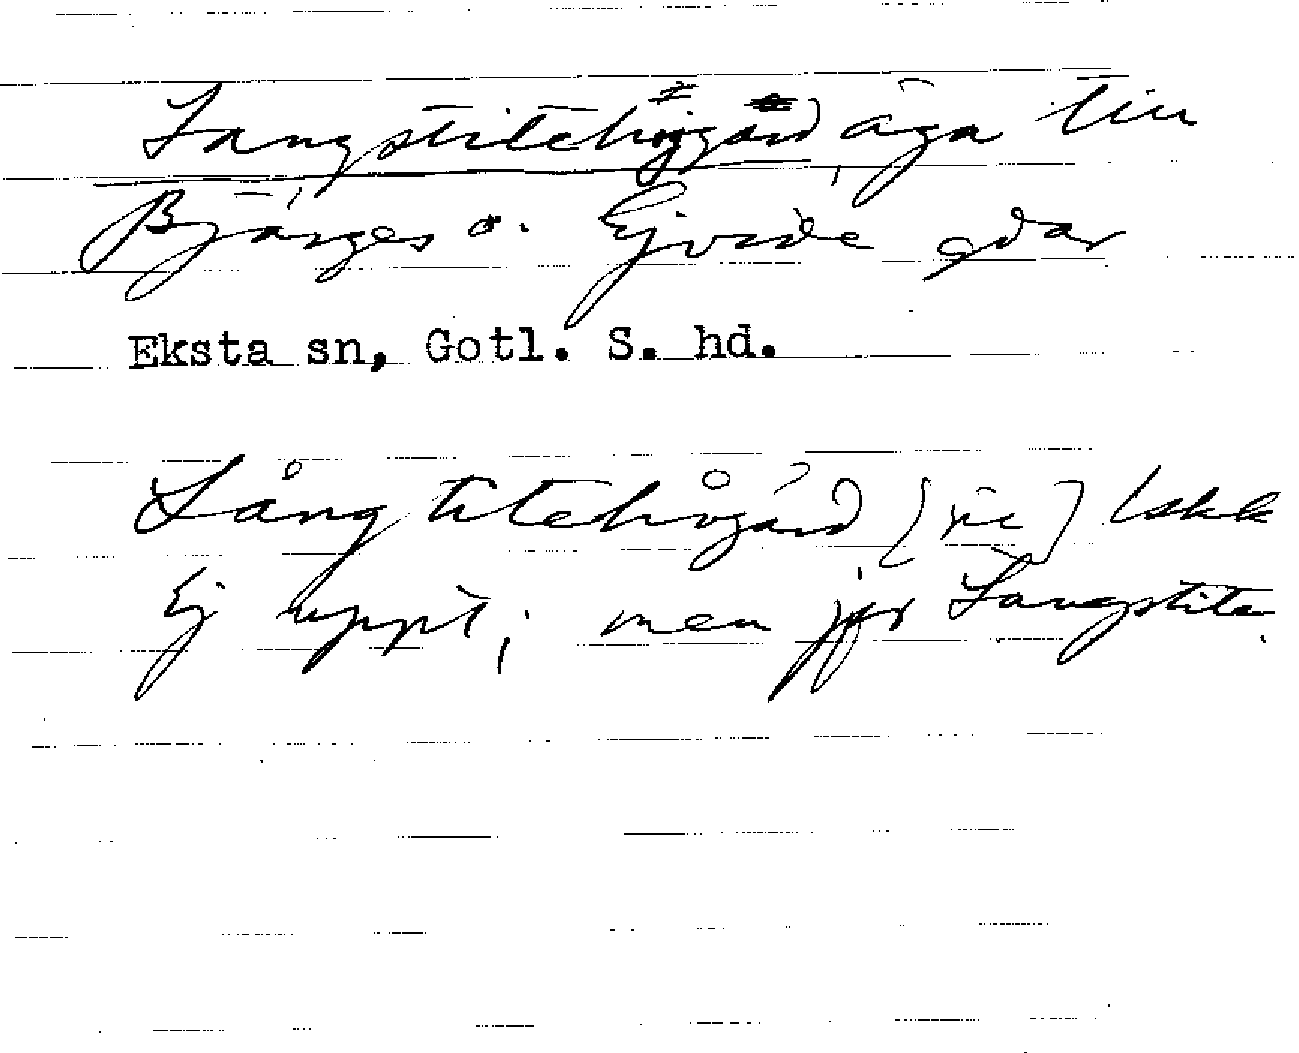 Langstitehojgård, äga till
Bjärges o. Ejvide gdar
Eksta sn, Gotl. S. hd.
Lång titehogård [sic] Iskk
Ej uppt; men jfr Langstite